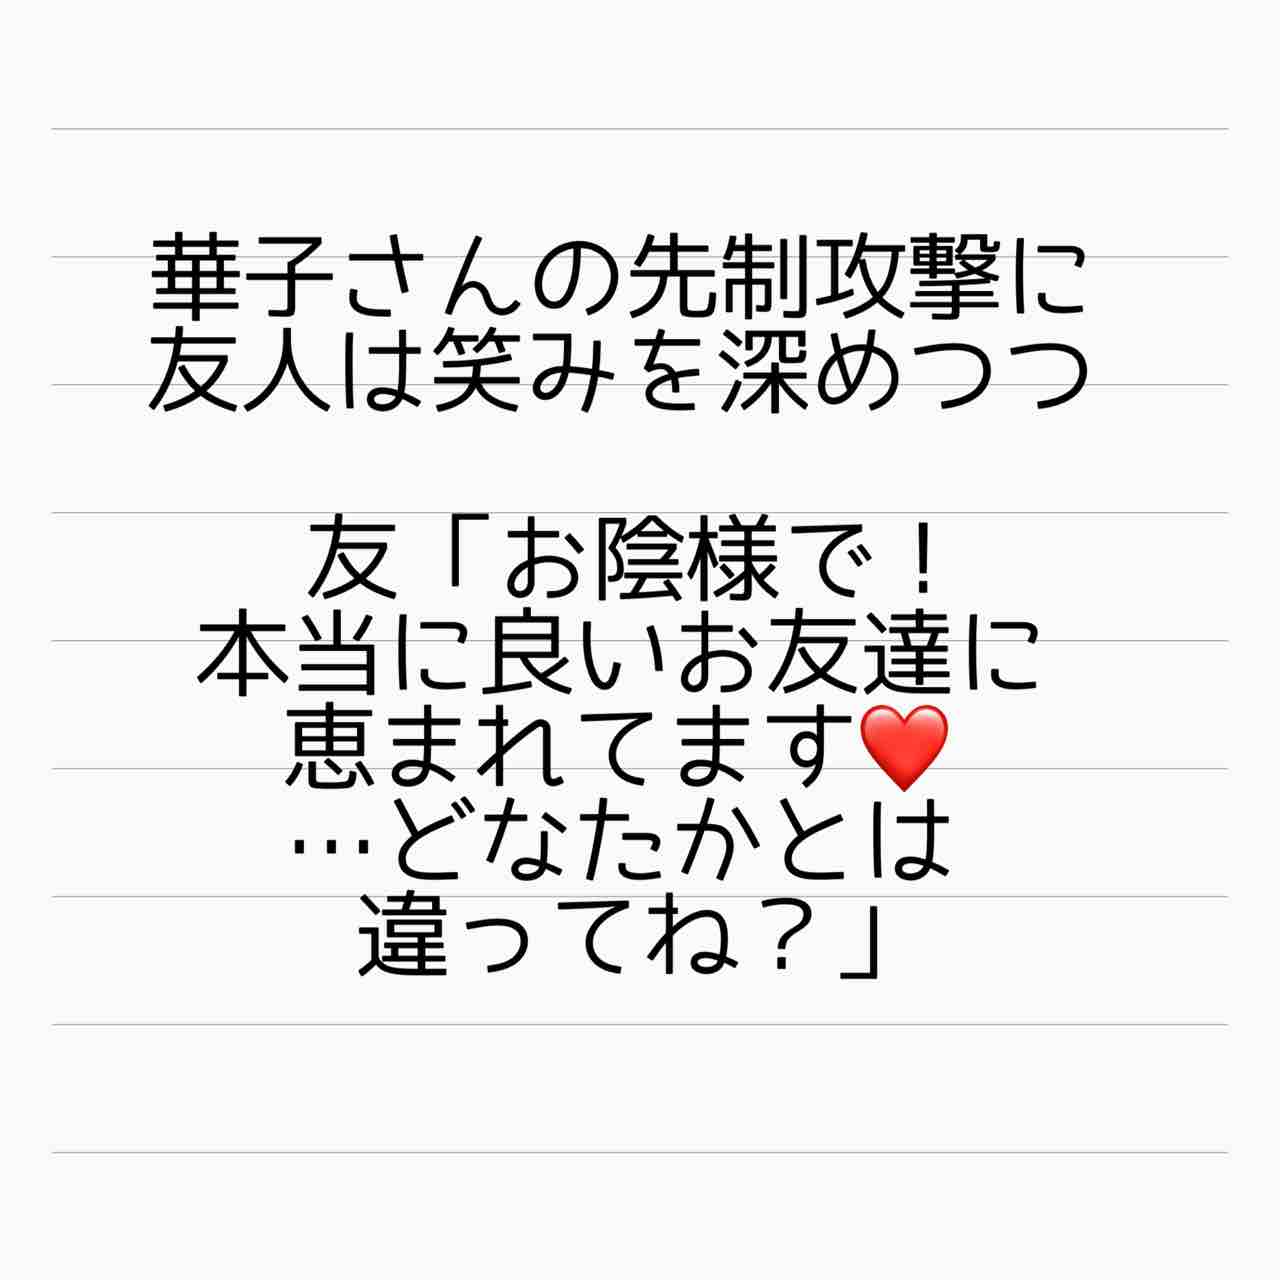 華子さんの先制攻撃に
友人は笑みを深めつつ
友「お陰様で！
本当に良いお友達に
恵まれてます❤️
…どなたかとは
違ってね？」